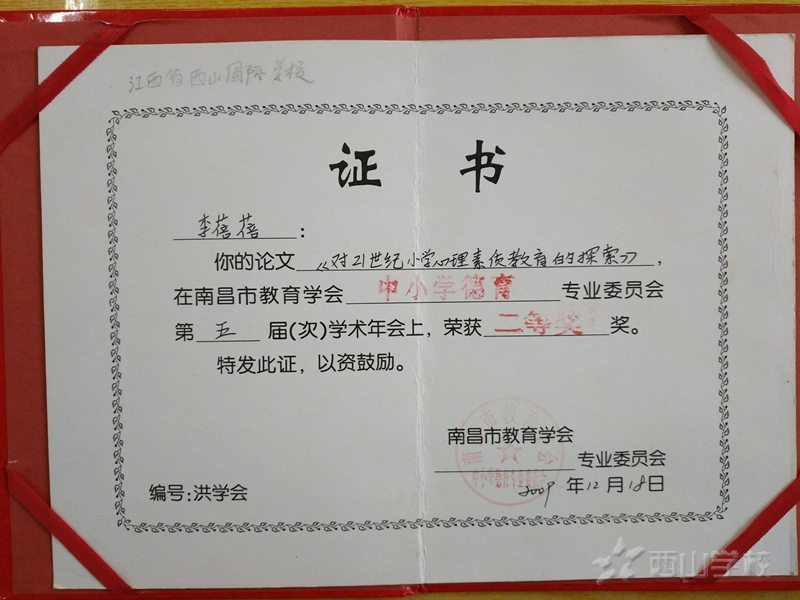 江西省西山国际学校
证书
李蓓蓓：
你的论文《对21世纪小学心理素质教育的探索》，
在南昌市教育学会 中小学德育 专业委员会
第五届(次)学术年会上，荣获二等奖奖。
特发此证，以资鼓励。
南昌市教育学会
专业委员会
编号:洪学会
2009年12月18日
西山学校